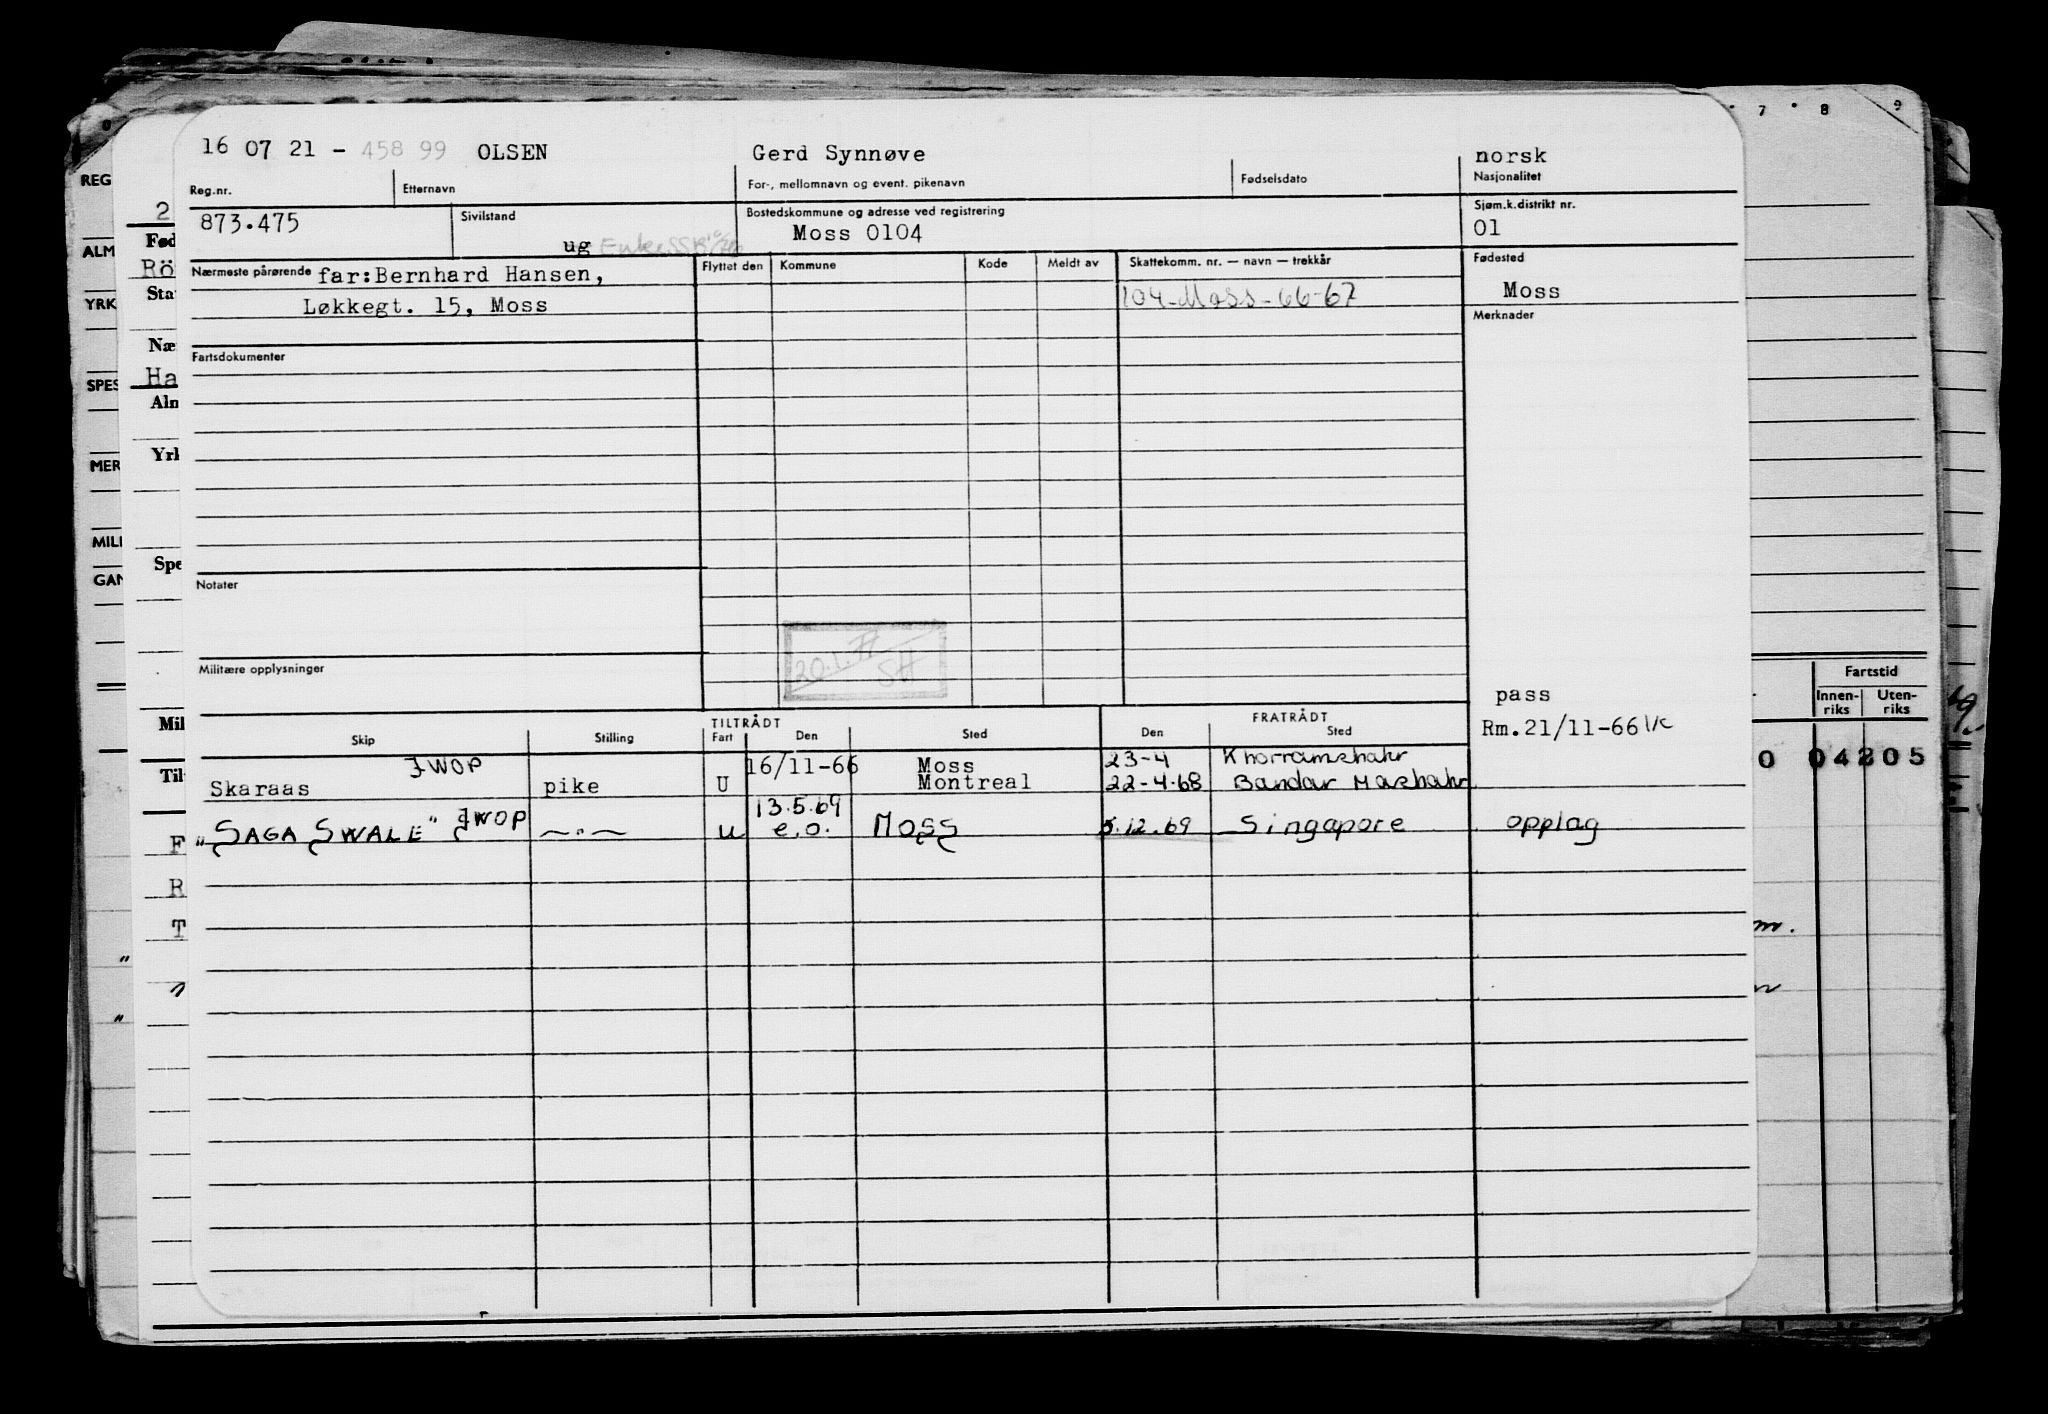 7 8 9
16 07 21 - 458 99 OLSEN Gerd Synnøve norsk
Reg.nr. Etternavn For-, mellomnavn og event. pikenavn Fødselsdato Nasjonalitet
873.475 Sivilstand ug Bostedskommune og adresse ved registrering Sjøm.k.distrikt nr.
Moss 0104 01
Nærmeste pårørende far:Bernhard Hansen, Flyttet den Kommune Kode Meldt av Skattekomm. nr. — navn — trekkår Fødested
Løkkegt. 15, Moss 104-Moss-66-67 Moss
Merknader
Fartsdokumenter
Notater
20.1.77 SH
Militære opplysninger
pass
Rm.21/11-66
TILTRÅDT FRATRÅDT
Skip Stilling Fart Den Sted Den Sted
JWOP 16/11-66 Moss 23-4 Khorramshahr
Skaraas pike U Montreal 22-4-68 Bandar Mashahr
13.5.69
"SAGA SWALE" JWOP —"— u e.o. MOSS 5.12.69 Singapore opplag
REG
ALM
YRK
SPES
MER
MILI
GAN
2
Fød
Rö
Sta
Næ
Ha
Aln
Yrk
Spe
Mil
Til
F
R
T
Fartstid
Innen-riks Uten-riks
0 04205
m.